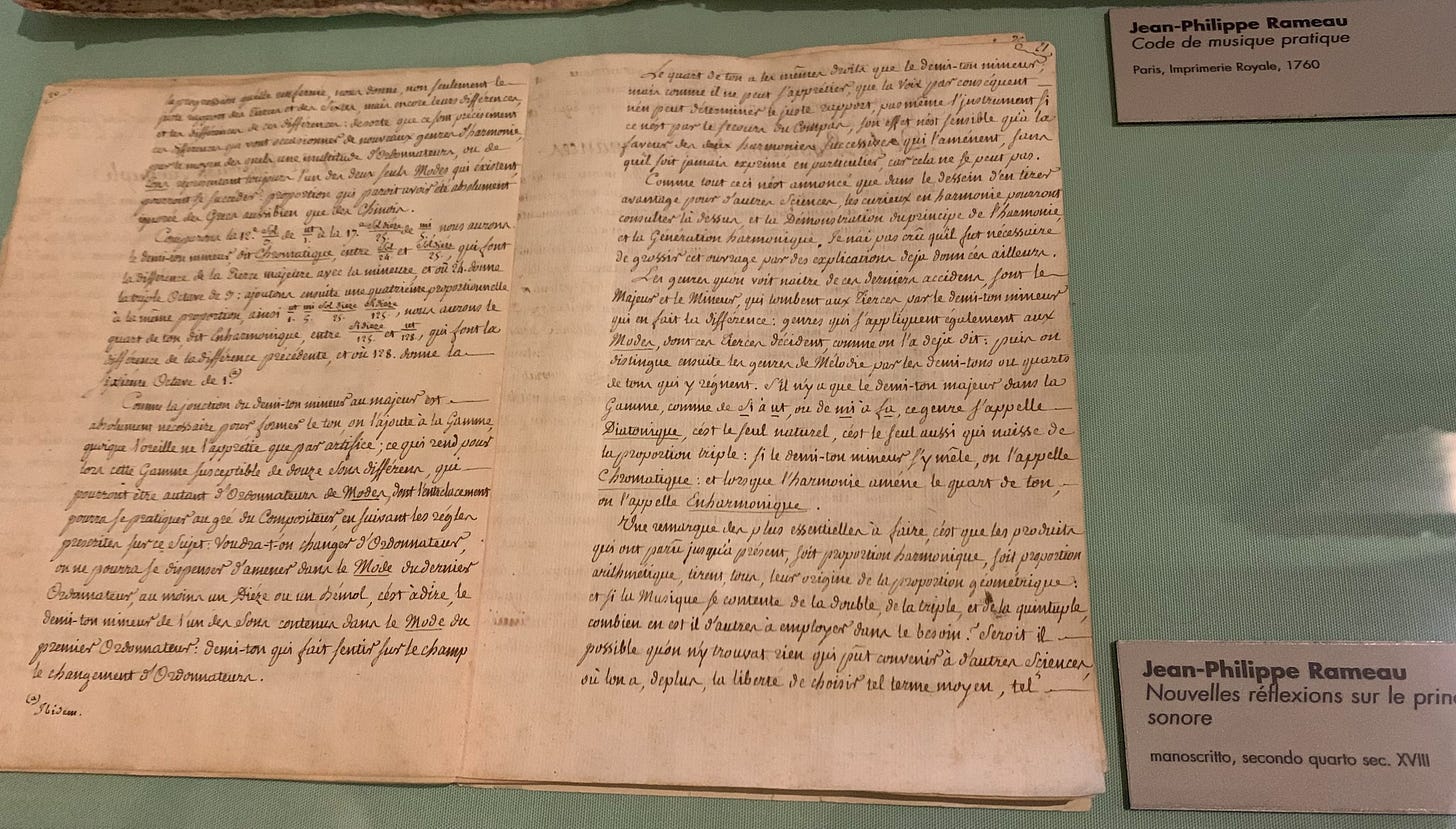 20
la progression qu'elle renferme, nous donne, non seulement le
juste rapport des Tierces et des Sixtes, mais encore leurs différences,
et les différences de ces différences: desorte que ce sont précisément
ces différences qui vont occasionner de nouveaux genres d'harmonie,
par le moyen des quels une multitude d'Ordonnateurs, ou de
Sons représentant toujours l'un des deux seuls Modes qui existent,
pourront se succéder: proportion qui paroit avoir été absolument
ignorée des Grecs aussi bien que des Chinois.
Comparons la 12.e Sol 3 de ut 1. à la 17.e Sol dieze 25. de mi 5. nous aurons
le demi-ton mineur dit Chromatique, entre Sol 24 et Sol dieze 25, qui font
la différence de la Tierce majeure avec la mineure, et où 24. donne
la triple Octave de 3: ajoutons ensuite une quatrième proportionnelle
à la même proportion, ainsi ut 1. mi 5. Sol dieze 25. Si dieze 125., nous aurons le
quart de ton dit Enharmonique, entre Si dieze 125. et ut 128., qui font la
différence de la différence précédente, et où 128. donne la
sixième Octave de 1. (a)
Comme la jonction du demi-ton mineur au majeur est
absolument nécessaire pour former le ton, on l'ajoute à la Gamme,
quoique l'oreille ne l'apprétie que par artifice; ce qui rend pour
lors cette Gamme susceptible de douze Sons différens, qui
pourront être autant d'Ordonnateurs de Modes, dont l'entrelacement
pourra se pratiquer au gré du Compositeur en suivant les règles
prescrites sur ce Sujet: Voudra-t-on changer d'Ordonnateur,
on ne pourra se dispenser d'amener dans le Mode du dernier
Ordonnateur, au moins un Dièze ou un bémol, c'est à dire, le
demi-ton mineur de l'un des Sons contenus dans le Mode du
premier Ordonnateur: demi-ton qui fait sentir sur le champ
le changement d'Ordonnateurs.
(a) Ibidem.
21
Le quart de ton a les mêmes droits que le demi-ton mineur;
mais comme il ne peut s'apprétier, que la Voix par conséquent
n'en peut déterminer le juste rapport, pas même l'instrument si
ce n'est par le secours du Compas, son effet n'est sensible qu'à la
faveur des deux harmonies Successives qui l'amènent, sans
qu'il soit jamais exprimé en particulier, car cela ne se peut pas.
Comme tout ceci n'est annoncé que dans le dessein d'en tirer
avantage pour d'autres Sciences, les curieux en harmonie pourront
consulter là dessus et la Démonstration du principe de l'harmonie
et la Génération harmonique. Je n'ai pas crû qu'il fut nécessaire
de grossir cet ouvrage par des explications déja données ailleurs.
Les genres qu'on voit naitre de ces derniers accidens sont le
Majeur et le Mineur, qui tombent aux Tierces par le demi-ton mineur
qui en fait la différence: genres qui s'appliquent également aux
Modes, dont ces Tierces décident, comme on l'a deja dit: puis on
distingue ensuite les genres de Mélodie par les demi-tons ou quarts
de tons qui y règnent. S'il n'y a que le demi-ton majeur dans la
Gamme, comme de Si à ut, ou de mi à fa, ce genre s'appelle
Diatonique, c'est le seul naturel, c'est le seul aussi qui naisse de
la proportion triple: si le demi-ton mineur s'y mêle, on l'appelle
Chromatique: et lorsque l'harmonie amène le quart de ton,
on l'appelle Enharmonique.
Une remarque des plus essentielles à faire, c'est que les produits
qui ont parû jusqu'à présent, soit proportion harmonique, soit proportion
arithmétique, tirent, tous, leur origine de la proportion géométrique:
et si la Musique se contente de la double, de la triple, et de la quintuple,
combien en est il d'autres à employer dans le besoin? Seroit il
possible qu'on n'y trouvat rien qui pût convenir à d'autres Sciences
où l'on a, deplus, la liberté de choisir tel terme moyen, tel
Jean-Philippe Rameau
Code de musique pratique
Paris, Imprimerie Royale, 1760
Jean-Philippe Rameau
Nouvelles réflexions sur le prin
sonore
manoscritto, secondo quarto sec. XVIII